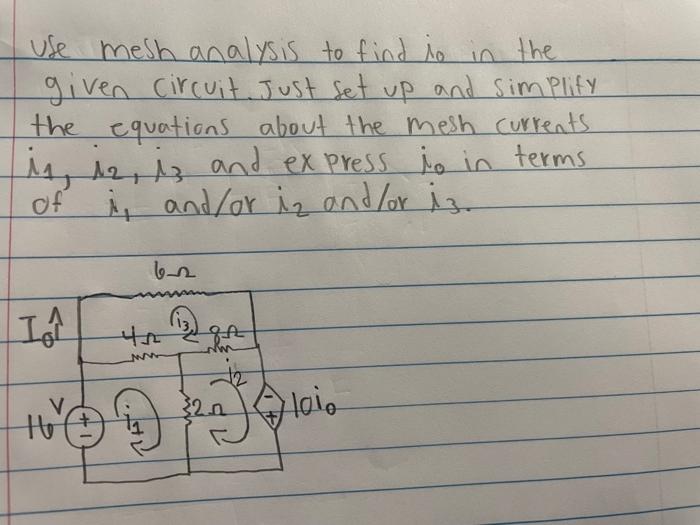 Use mesh analysis to find io in the
given circuit. Just set up and simplify
the equations about the mesh currents
i1, i2, i3 and express io in terms
of i1 and/or i2 and/or i3.
6Ω
Io
4Ω i3 8Ω
i2
16V + - i1 2Ω - + 10io